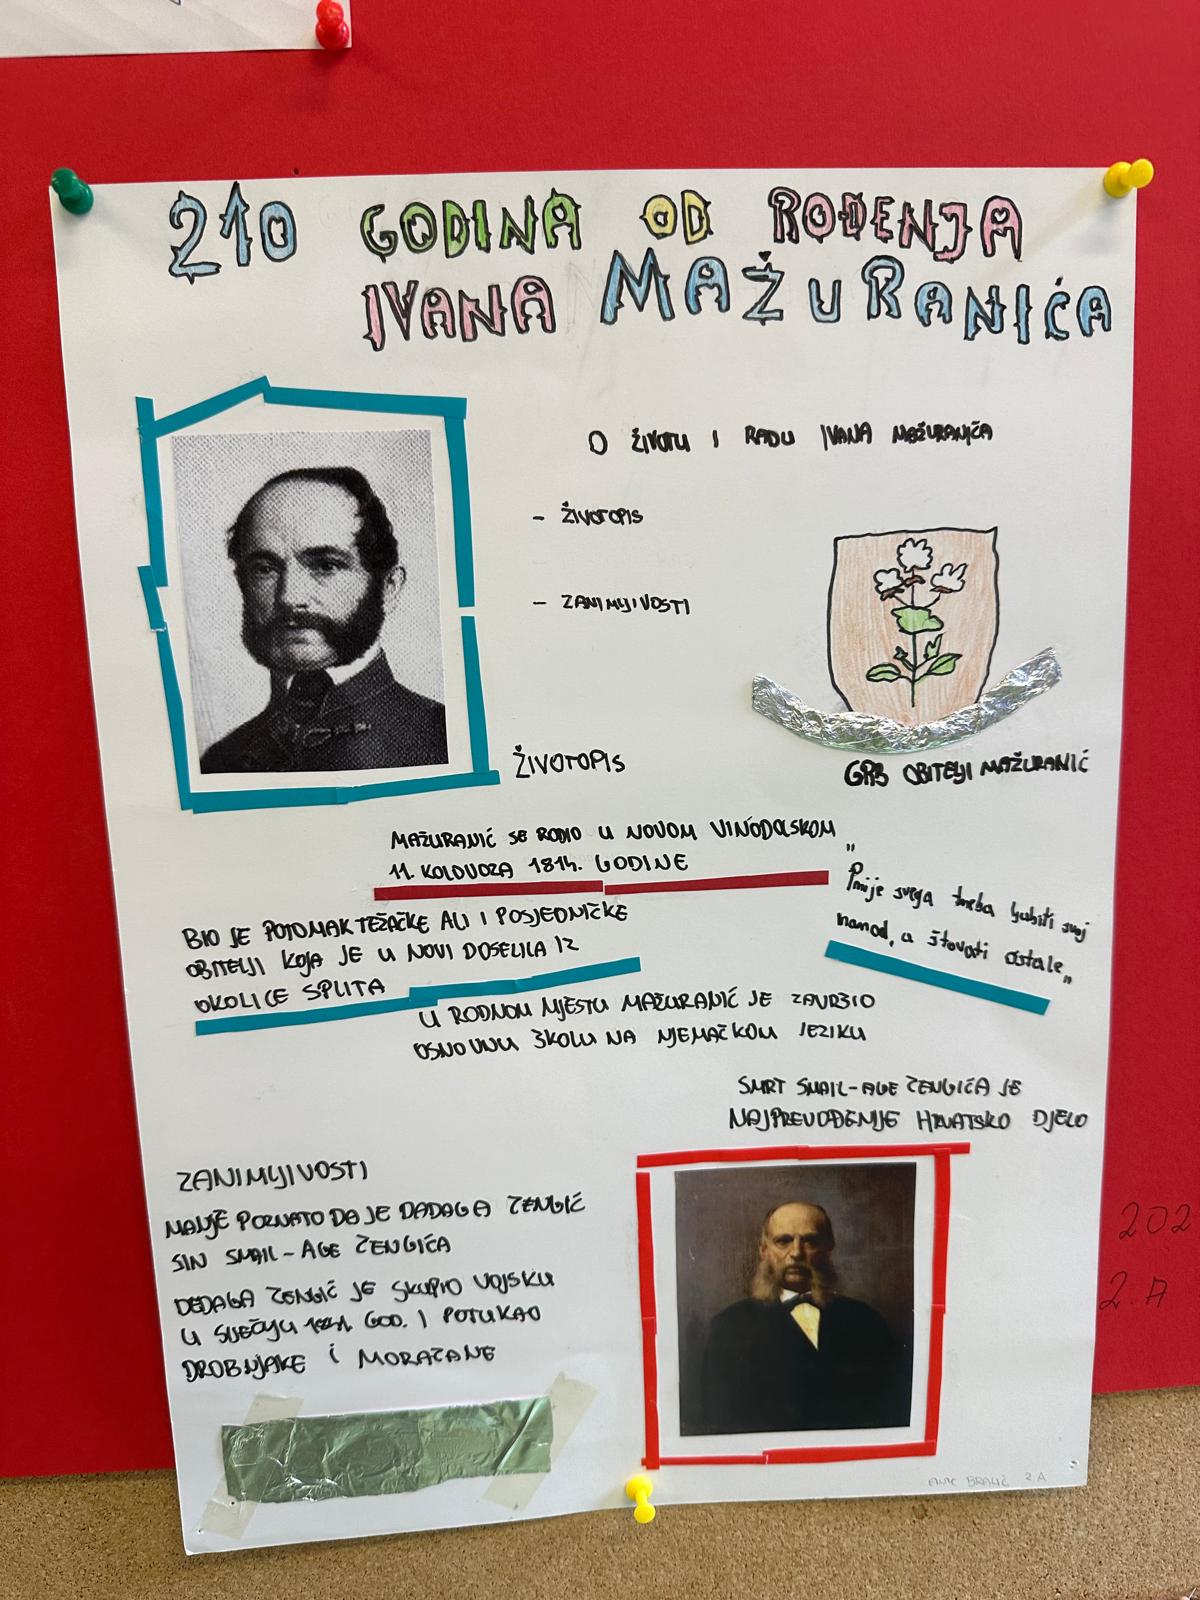 210 GODINA OD ROĐENJA
IVANA MAŽURANIĆA
O ŽIVOTU I RADU IVANA MAŽURANIĆA
- ŽIVOTOPIS
- ZANIMLJIVOSTI
GRB OBITELJI MAŽURANIĆ
ŽIVOTOPIS
MAŽURANIĆ SE RODIO U NOVOM VINODOLSKOM
11. KOLOVOZA 1814. GODINE
"Prije svega treba ljubiti svoj
narod, a štovati ostale„
BIO JE POTOMAK TEŽAČKE ALI I POSJEDNIČKE
OBITELJI KOJA JE U NOVI DOSELILA IZ
OKOLICE SPLITA
U RODNOM MJESTU MAŽURANIĆ JE ZAVRŠIO
OSNOVNU ŠKOLU NA NJEMAČKOM JEZIKU
SMRT SMAIL-AGE ČENGIĆA JE
NAJPREVOĐENIJE HRVATSKO DJELO
ZANIMLJIVOSTI
MANJE POZNATO DA JE DADAGA ČENGIĆ
SIN SMAIL-AGE ČENGIĆA
DEDAGA ČENGIĆ JE SKUPIO VOJSKU
U SIJEČNJU GOD. I POTUKAO
DROBNJAKE I MORAČANE
BRALIĆ 2.A
202
2.A